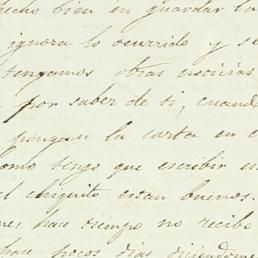 hecho bien en guardar la
ignora lo ocurrido y se
tengamos otras
por saber de ti, cuando
pongan la carta en c
como tengo que escribir en
el chiquito estan buenos.
nes hace tiempo no recibo
hace pocos dias diciendome